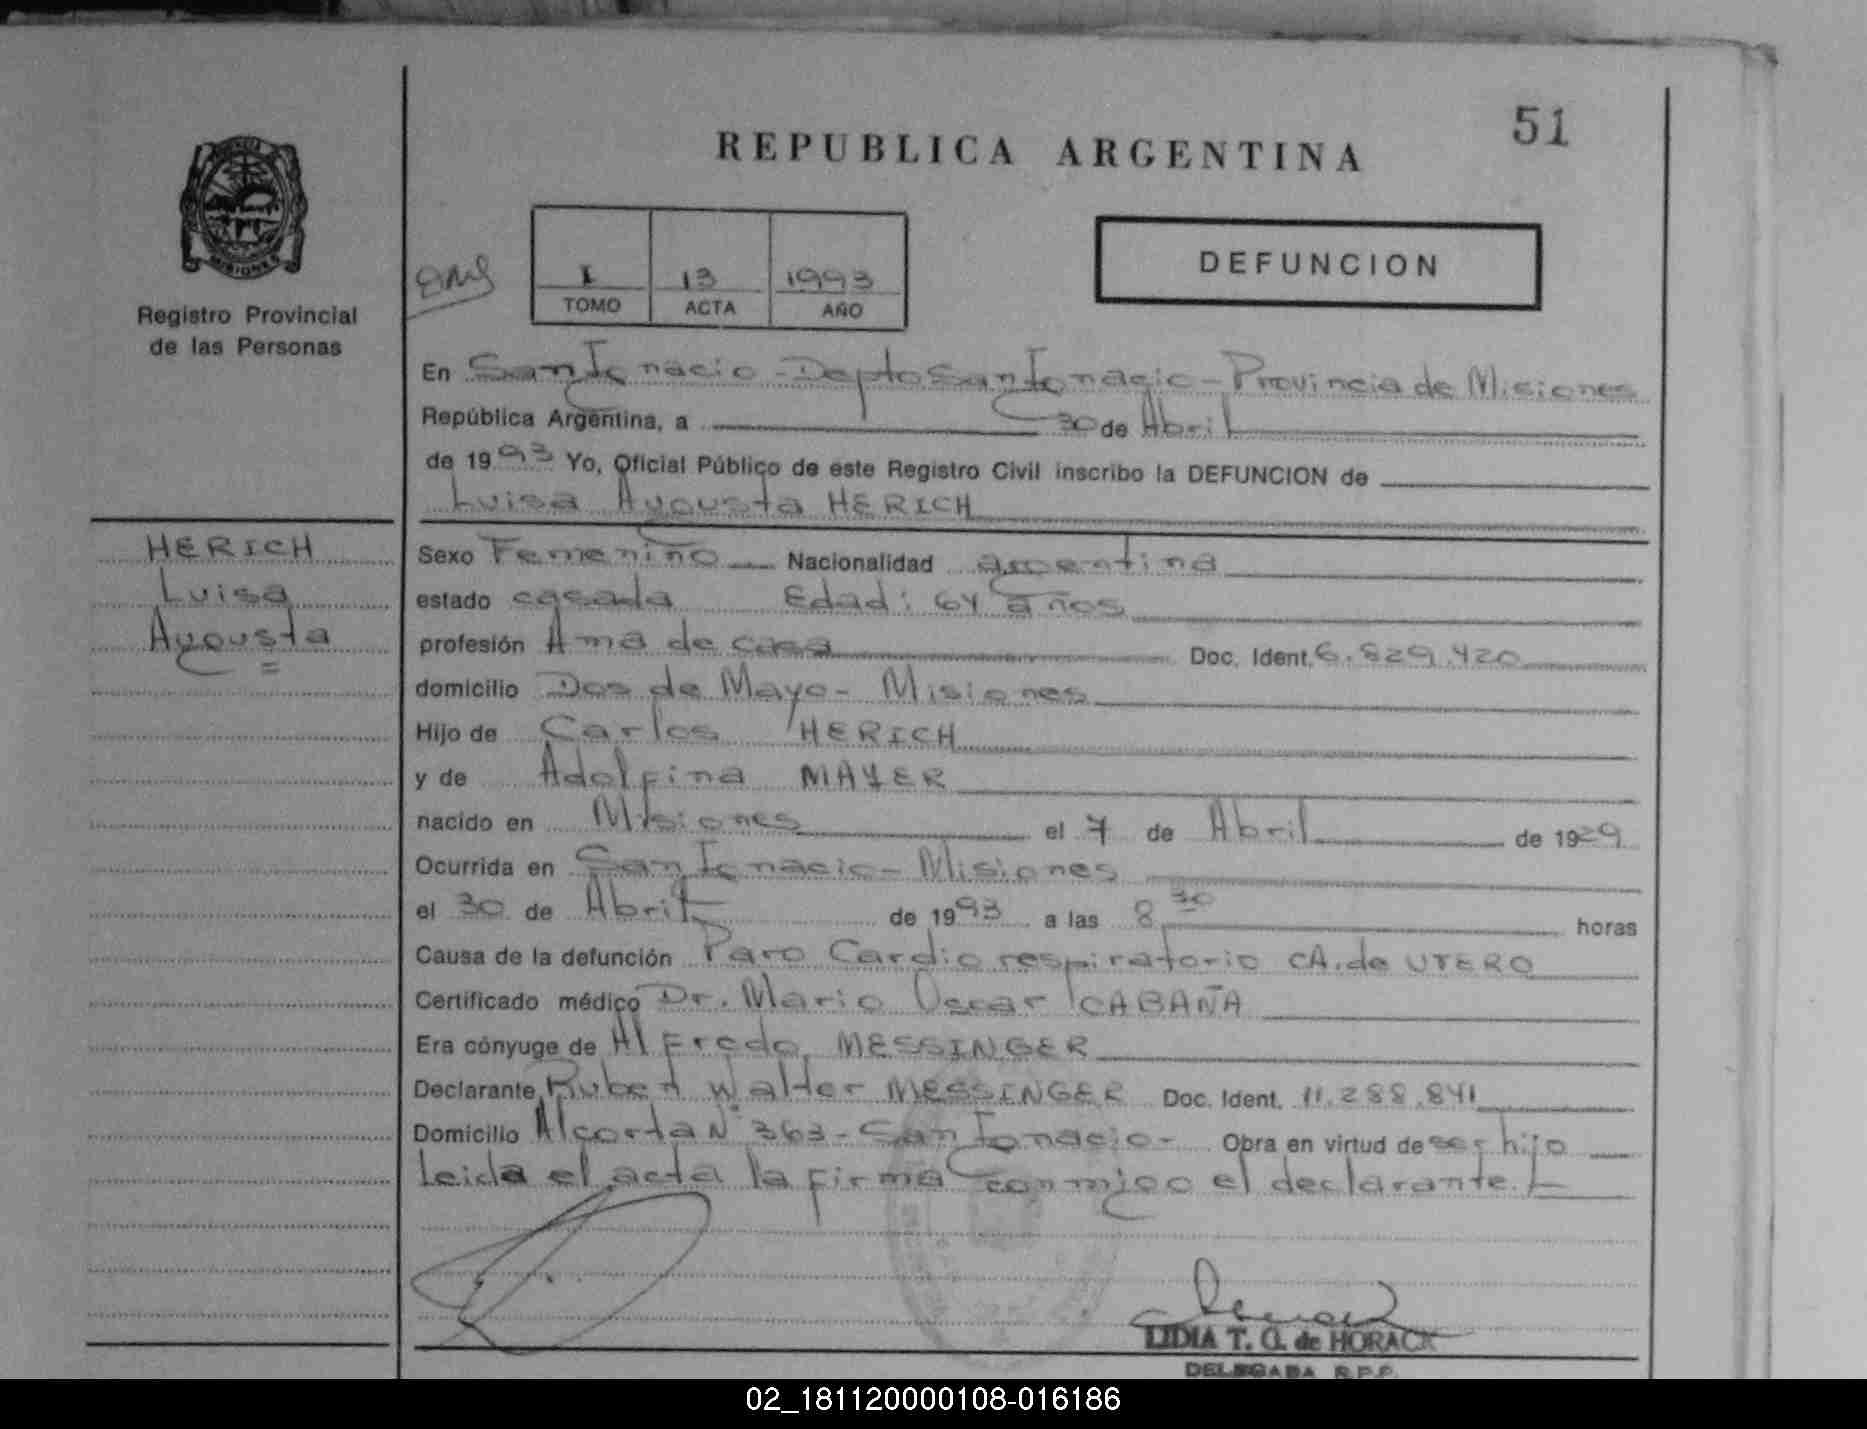 51
REPUBLICA ARGENTINA
PROVINCIA
MISIONES
Registro Provincial
de las Personas
I 13 1993
TOMO ACTA AÑO
DEFUNCION
En San Ignacio - Depto San Ignacio - Provincia de Misiones
República Argentina, a 30 de Abril
de 1993 Yo, Oficial Público de este Registro Civil inscribo la DEFUNCION de
Luisa Augusta HERICH
HERICH
Luisa
Augusta
Sexo Femenino Nacionalidad argentina
estado casada Edad: 64 años
profesión Ama de casa Doc. Ident. 6.829.420
domicilio Dos de Mayo - Misiones
Hijo de Carlos HERICH
y de Adolfina MAYER
nacido en Misiones el 7 de Abril de 1929
Ocurrida en San Ignacio - Misiones
el 30 de Abril de 1993 a las 8 30 horas
Causa de la defunción Paro Cardio respiratorio CA. de UTERO
Certificado médico Dr. Mario Oscar CABAÑA
Era cónyuge de Alfredo MESSINGER
Declarante Ruben Walter MESSINGER Doc. Ident. 11.288.841
Domicilio Alcorta N° 363 - San Ignacio - Obra en virtud de ser hijo
Leida el acta la firma conmigo el declarante.
LIDIA T. G. de HORACK
DELEGADA R.P.P.
02_181120000108-016186